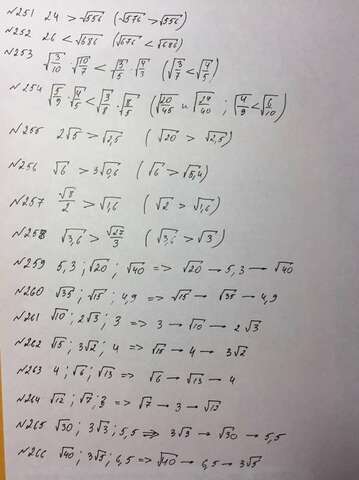 №251 24 > √556 (√576 > √556)
№252 26 < √686 (√676 < √686)
№253 √3/10 · √10/7 < √3/5 · √4/3 (√3/7 < √4/5)
№254 √5/9 · √4/5 < √3/8 · √8/5 (√20/45 и √24/40 ; √4/9 < √6/10)
№255 2√5 > √2,5 (√20 > √2,5)
№256 √6 > 3√0,6 (√6 > √5,4)
№257 √8/2 > √1,6 (√2 > √1,6)
№258 √3,6 > √27/3 (√3,6 > √3)
№259 5,3 ; √20 ; √40 => √20 → 5,3 → √40
№260 √35 ; √15 ; 4,9 => √15 → √35 → 4,9
№261 √10 ; 2√3 ; 3 => 3 → √10 → 2√3
№262 √15 ; 3√2 ; 4 => √15 → 4 → 3√2
№263 4 ; √6 ; √13 => √6 → √13 → 4
№264 √12 ; √7 ; 3 => √7 → 3 → √12
№265 √30 ; 3√3 ; 5,5 => 3√3 → √30 → 5,5
№266 √40 ; 3√5 ; 6,5 => √40 → 6,5 → 3√5